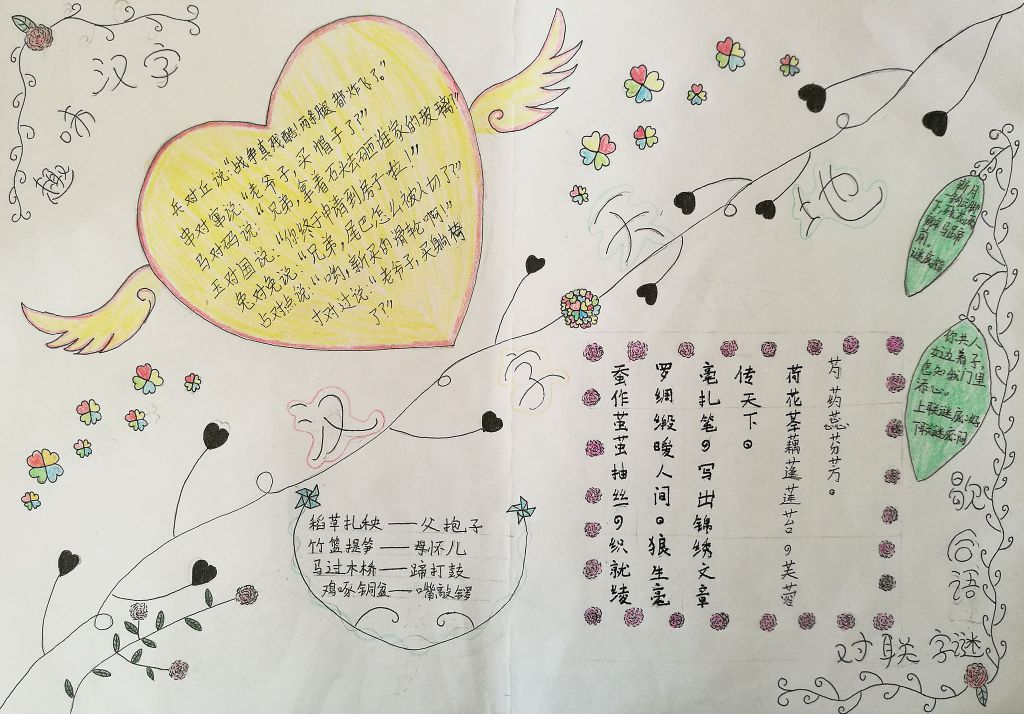 趣味汉字
兵对丘说:“战争真残酷,两条腿都炸飞了。”
串对窜说:“老爷子,买帽子了?”
马对码说:“兄弟,拿着石头去砸谁家的玻璃?”
玉对国说:“你终于申请到房子啦!”
兔对免说:“兄弟,尾巴怎么被人切了?”
占对点说:“哟,新买的滑轮啊!”
寸对过说:“老爷子,买躺椅
了?”
天地
汉字
稻草扎秧——父抱子
竹篮提笋——母怀儿
马过木桥——蹄打鼓
鸡啄铜盆——嘴敲锣
芍药蕊芬芳。
荷花茎藕蓬莲苔。芙蓉
传天下。
毫扎笔。写出锦绣文章
罗绸缎暖人间。狼生毫
蚕作茧茧抽丝。织就绫
你共人
女边着子,
门里
添心。
上联谜底:好
下联谜底:闷
歇后语
对联字谜